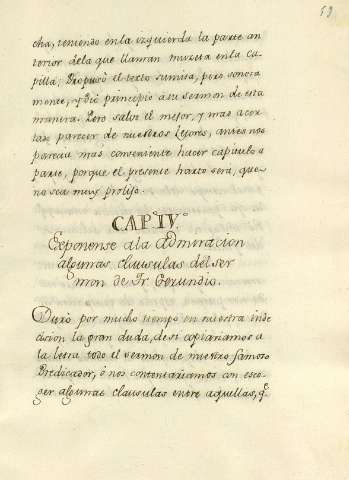 59
cha, teniendo en la izquierda la parte an
terior de la que llaman muzeta en la ca
pilla; Propusó el texto sumisa, pero sonora
mente, y dió principio a su sermon de esta
manera. Pero salvo el mejor, y mas acer
tado parecer de nuestros Letores, antes nos
parecia mas conveniente hacer capitulo a
parte, porque el presente harto será, que
no sea muy prolijo.
CAP. IV.
Exponense a la admiracion
algunas clausulas del ser
mon de Fr. Gerundio.
Duró por mucho tiempo en nuestra inde
cision la gran duda, de si copiariamos a
la letra todo el sermon de nuestro famoso
Predicador, ó nos contentariamos con esco-
ger algunas clausulas entre aquellas, q.